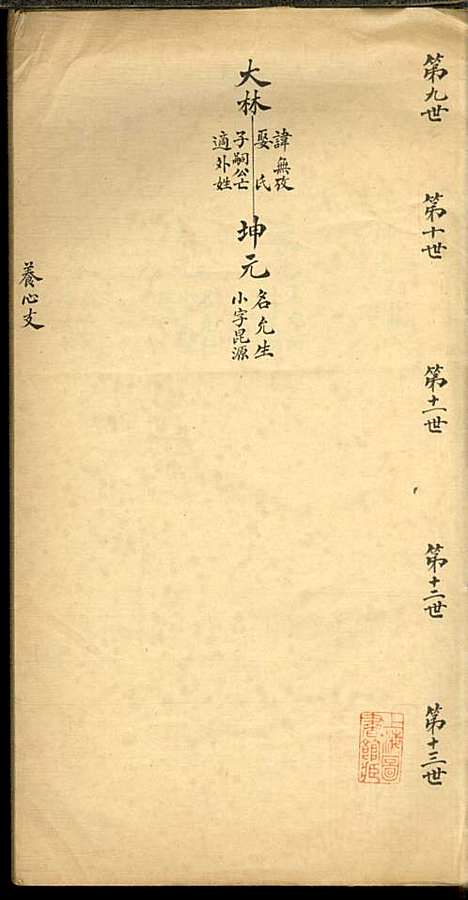 第九世
第十世
第十一世
第十二世
第十三世
大林
諱無攷
娶氏
子嗣公亡
適外姓
坤元
名允生
小字昆源
養心支
上海圖
書館藏